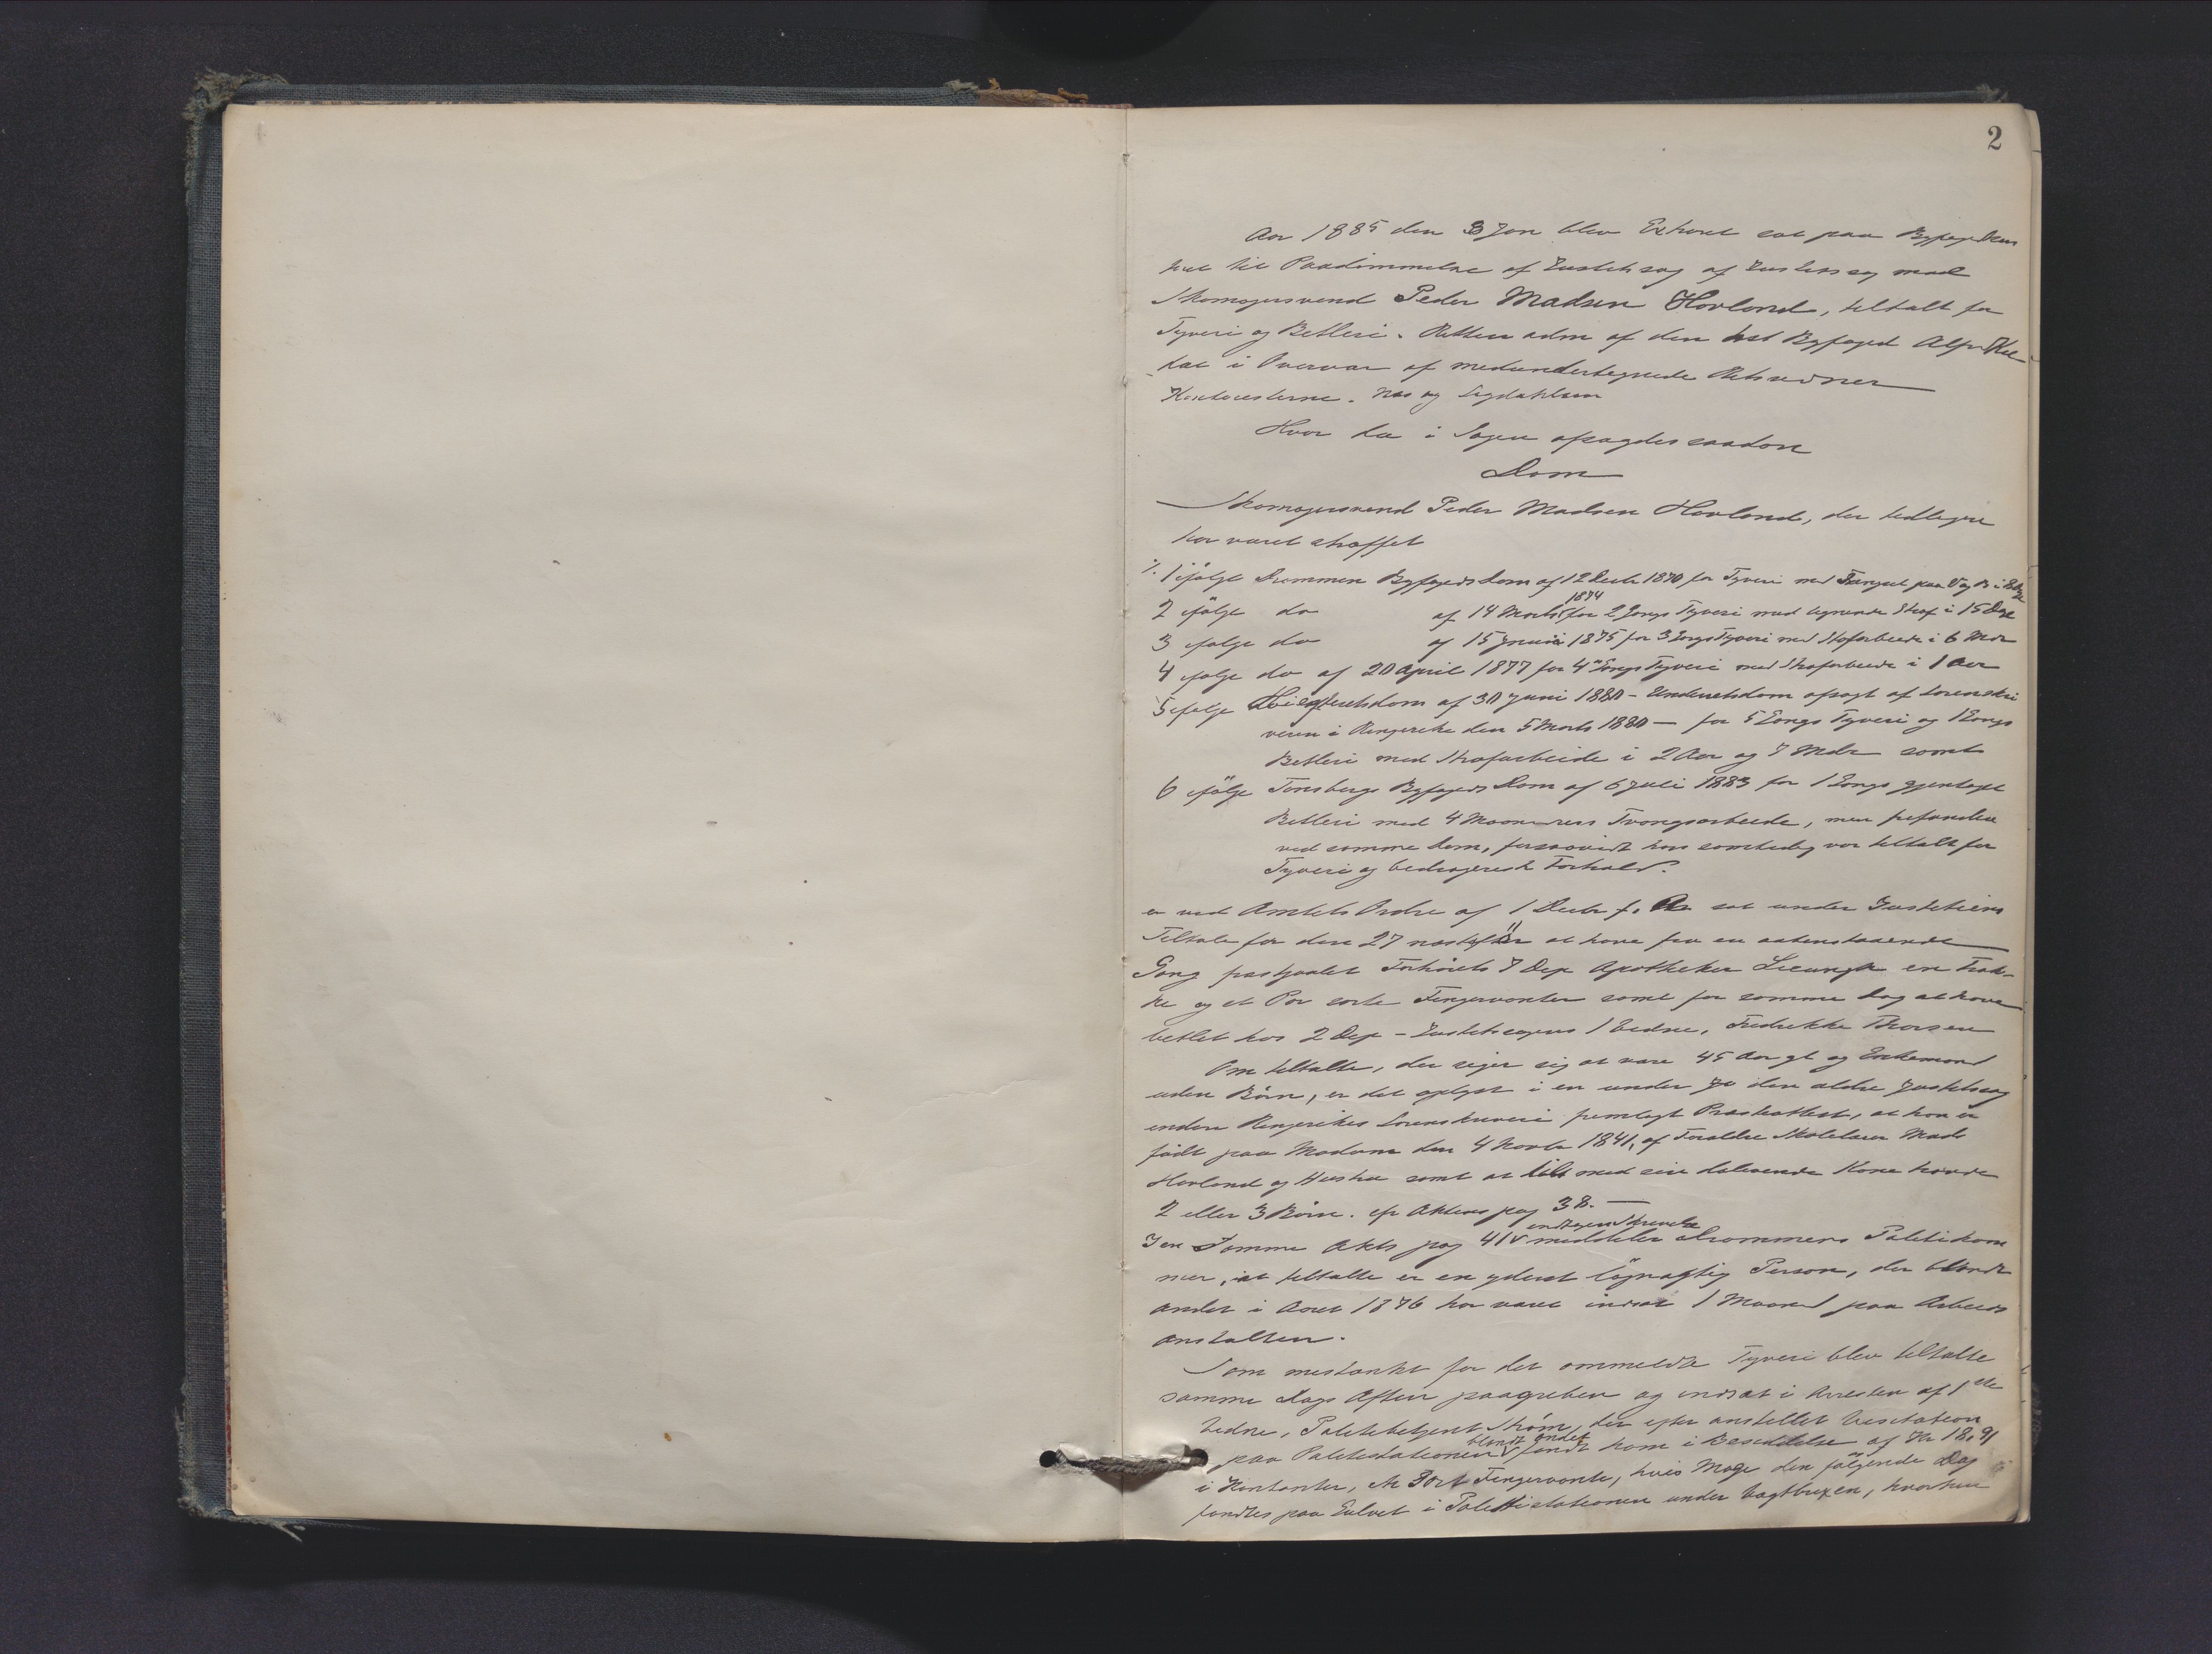 2
Aar 1885 den 3 Jan blev Extraret sat paa Bygfogedkon
toret til Paadømmelse af Justitssag af Justitssag mod
Skomagersvend Peder Madsen Hovland, tiltalt for
Tyveri og Betleri. Retten adm af den const Byfoged Alf
i Overvær af medundertegnede Retsvidner
Kontoristerne. Næs og Sigdahlsen
Hvor da i Sagen afsagdes saadan
Dom
Skomagersvend Peder Madsen Hovland, der tidligere
har været straffet
1 ifølge Drammen Byfogeds Dom af 12 Decbr 1870 for Tyveri med Fængsel paa V og B i Dage
2 ifølge do af 14 Marts 1874 for 2 Gangs Tyveri med lignende Straf i 15 Dage
3 ifølge do af 15 Januar 1875 for 3 Gangs Tyveri med Strafarbeide i 6 Mdr
4 ifølge do af 20 April 1877 for 4de Gangs Tyveri med Strafarbeide i 1 Aar
5 ifølge Høiesteretsdom af 30 Juni 1880 - Underretsdom afsagt af Sorenskri
veren i Ringerike den 5 Marts 1880 — for 5 Gangs Tyveri og 1 Gangs
Betleri med Strafarbeide i 2 Aar og 7 Mdr samt
6 ifølge Tønsbergs Byfogeds Dom af 6 Juli 1883 for 1 Gangs gjentaget
Betleri med 4 Maaneders Tvangsarbeide, men frifunden
ved samme Dom, forsaavidt han samtidig var tiltalt for
Tyveri og bedragersk Forhold.
er ved Amtets Ordre af 1 Decbr f. A. sat under Justitiens
Tiltale for den 27 næstefter at have fra en aabenstaaende
Gang frastjaalet Forhørets 7 Dep Apotheker en Frak-
ke og et Par sorte Fingervanter samt for samme Dag at have
betlet hos 2 Dep - Justitssagens 1 Vidne, Fredrikke Thorsen
Om tiltalte, der siger sig at være 45 Aar gl og Enkemand
uden Børn, er det oplyst i en under den ældre Justitssag
under Ringerikes Sorenskriveri fremlagt Præsteattest, at han er
født paa Modum den 4 Novbr 1841, af Forældre Skolelærer Mads
Hovland og Hustru samt at tilt med sin dalevende Kone havde
2 eller 3 Børn. cfr Aktens pag 38. —
I en samme Akts pag 41 indtagen Skrivelse meddeler Drammens Politikam
mer, at tiltalte er en yderst løgnagtig Person, der blandt
andet i Aaret 1876 har været indsat 1 Maaned paa Arbeids
anstalten.
Som mistænkt for det ommeldte Tyveri blev tiltalte
samme Dags Aften paagreben og indsat i Arresten af 1ste
Vidne, Politibetjent Strøm, der efter anstillet Visitation
paa Politistationen blandt andet fandt ham i Besiddelse af Kr 18,91
i Kontanter, en sort Fingervante, hvis Mage den følgende Dag
fandtes paa Gulvet i Politistationen under Vagtbrixen, hvorhen